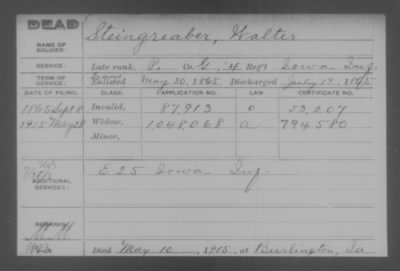 DEAD
Steingreaber, Walter
NAME OF SOLDIER:
SERVICE: Late rank, P. Co. G, Reg't Iowa Inf.
TERM OF SERVICE: Enlisted May 20, 1865 Discharged July 1865
DATE OF FILING. CLASS. APPLICATION NO. LAW. CERTIFICATE NO.
1865 Sept 8 Invalid, 87,913 0 53,207
1915 May 28 Widow, 1,048,068 a 794580
Minor,
ADDITIONAL SERVICES: E 25 Iowa Inf.
REMARKS:
Died May 10, 1915, at Burlington, Ia.